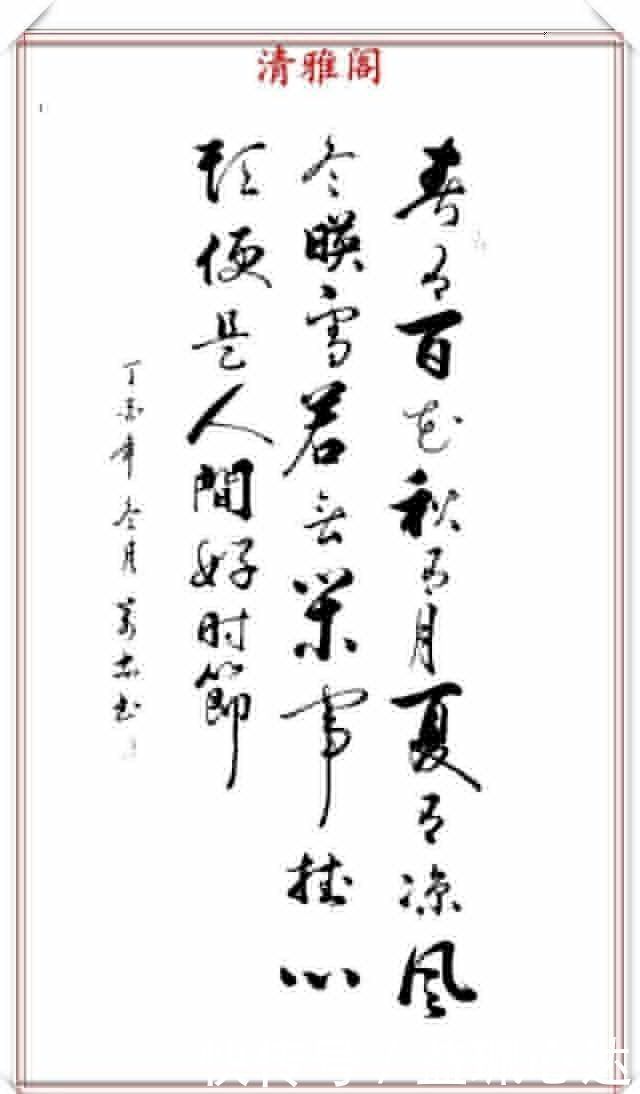 清雅阁
春有百花秋有月夏有凉风
冬暎雪若无閑事挂心
头便是人間好时節
丁 年冬月 书
快传号 /